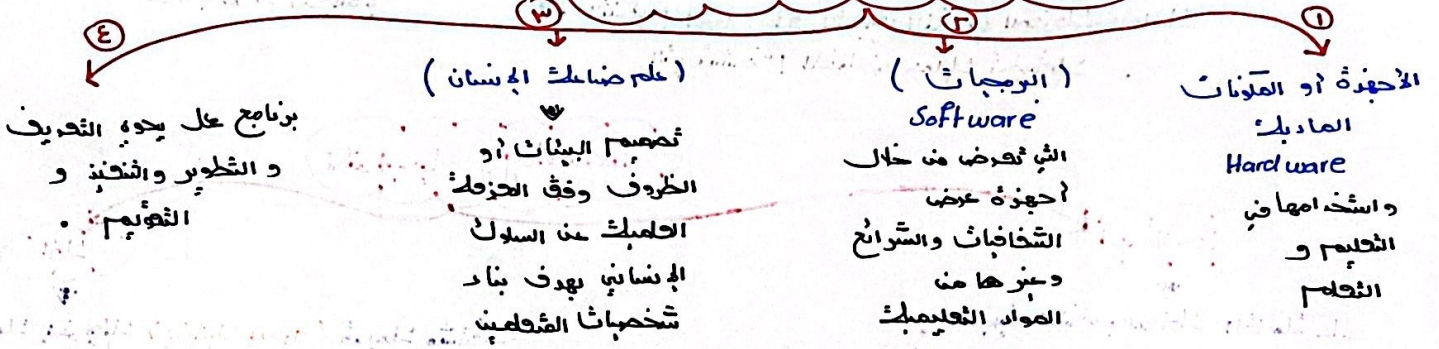 ١
الأجهزة أو المكونات
المادية
Hardware
واستخدامها في
التعليم و
التعلم
٢
(البرمجيات)
Software
التي تعرض من خلال
أجهزة عرض
الشفافيات والشرائح
وغيرها من
المواد التعليمية
٣
(علم صناعة الإنسان)
تصميم البيئات أو
الظروف وفق المعرفة
العلمية عن السلوك
الإنساني بهدف بناء
شخصيات المتعلمين
٤
برنامج عمل يحوي التعريف
و التطوير والتنفيذ و
التقويم .